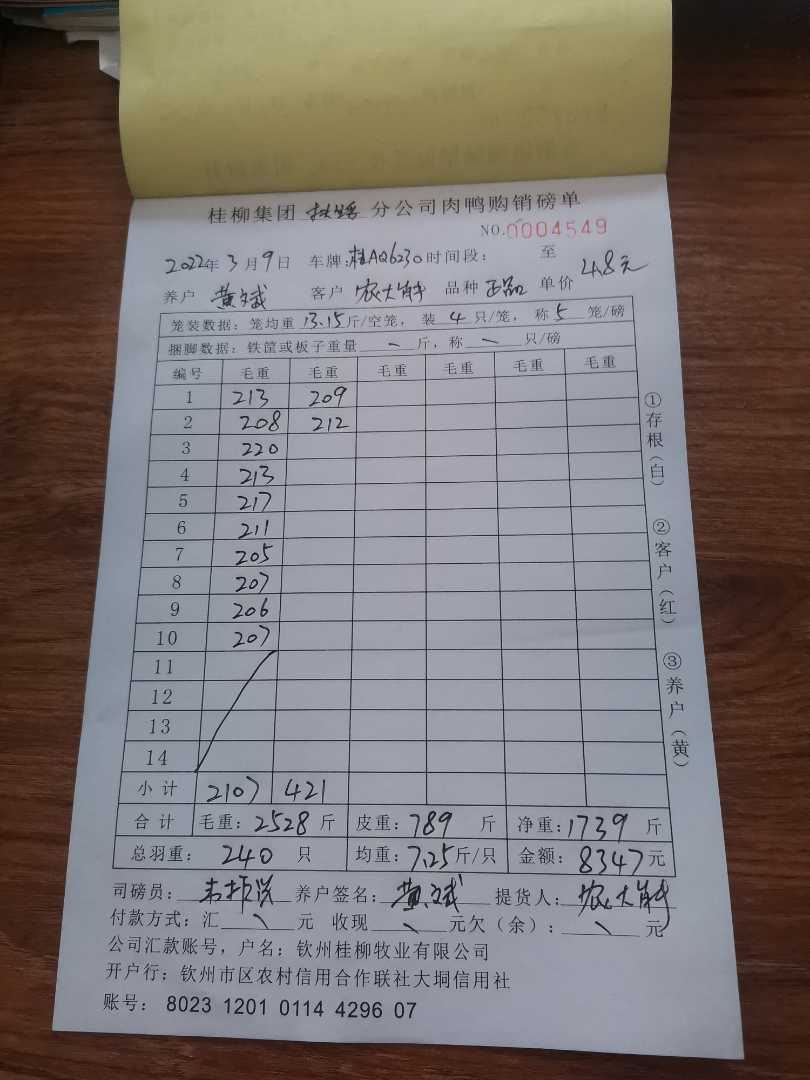 桂柳集团 分公司肉鸭购销磅单
NO.0004549
2022年3月9日 车牌:桂AQ6230时间段: 至
养户 黄斌 客户 农大 品种 正品 单价 4.8元
笼装数据:笼均重13.15斤/空笼,装4只/笼,称5笼/磅
捆脚数据:铁筐或板子重量 \ 斤,称 \ 只/磅
编号 毛重 毛重 毛重 毛重 毛重 毛重
1 213 209
2 208 212
3 220
4 213
5 217
6 211
7 205
8 207
9 206
10 207
11
12
13
14
小计 2107 421
合计 毛重:2528斤 皮重:789斤 净重:1739斤
总羽重:240只 均重:7.25斤/只 金额:8347元
司磅员: 养户签名:黄斌 提货人:农大
付款方式:汇 \ 元 收现 \ 元欠(余): \ 元
公司汇款账号,户名:钦州桂柳牧业有限公司
开户行:钦州市区农村信用合作联社大垌信用社
账号: 8023 1201 0114 4296 07
①存根(白)
②客户(红)
③养户(黄)